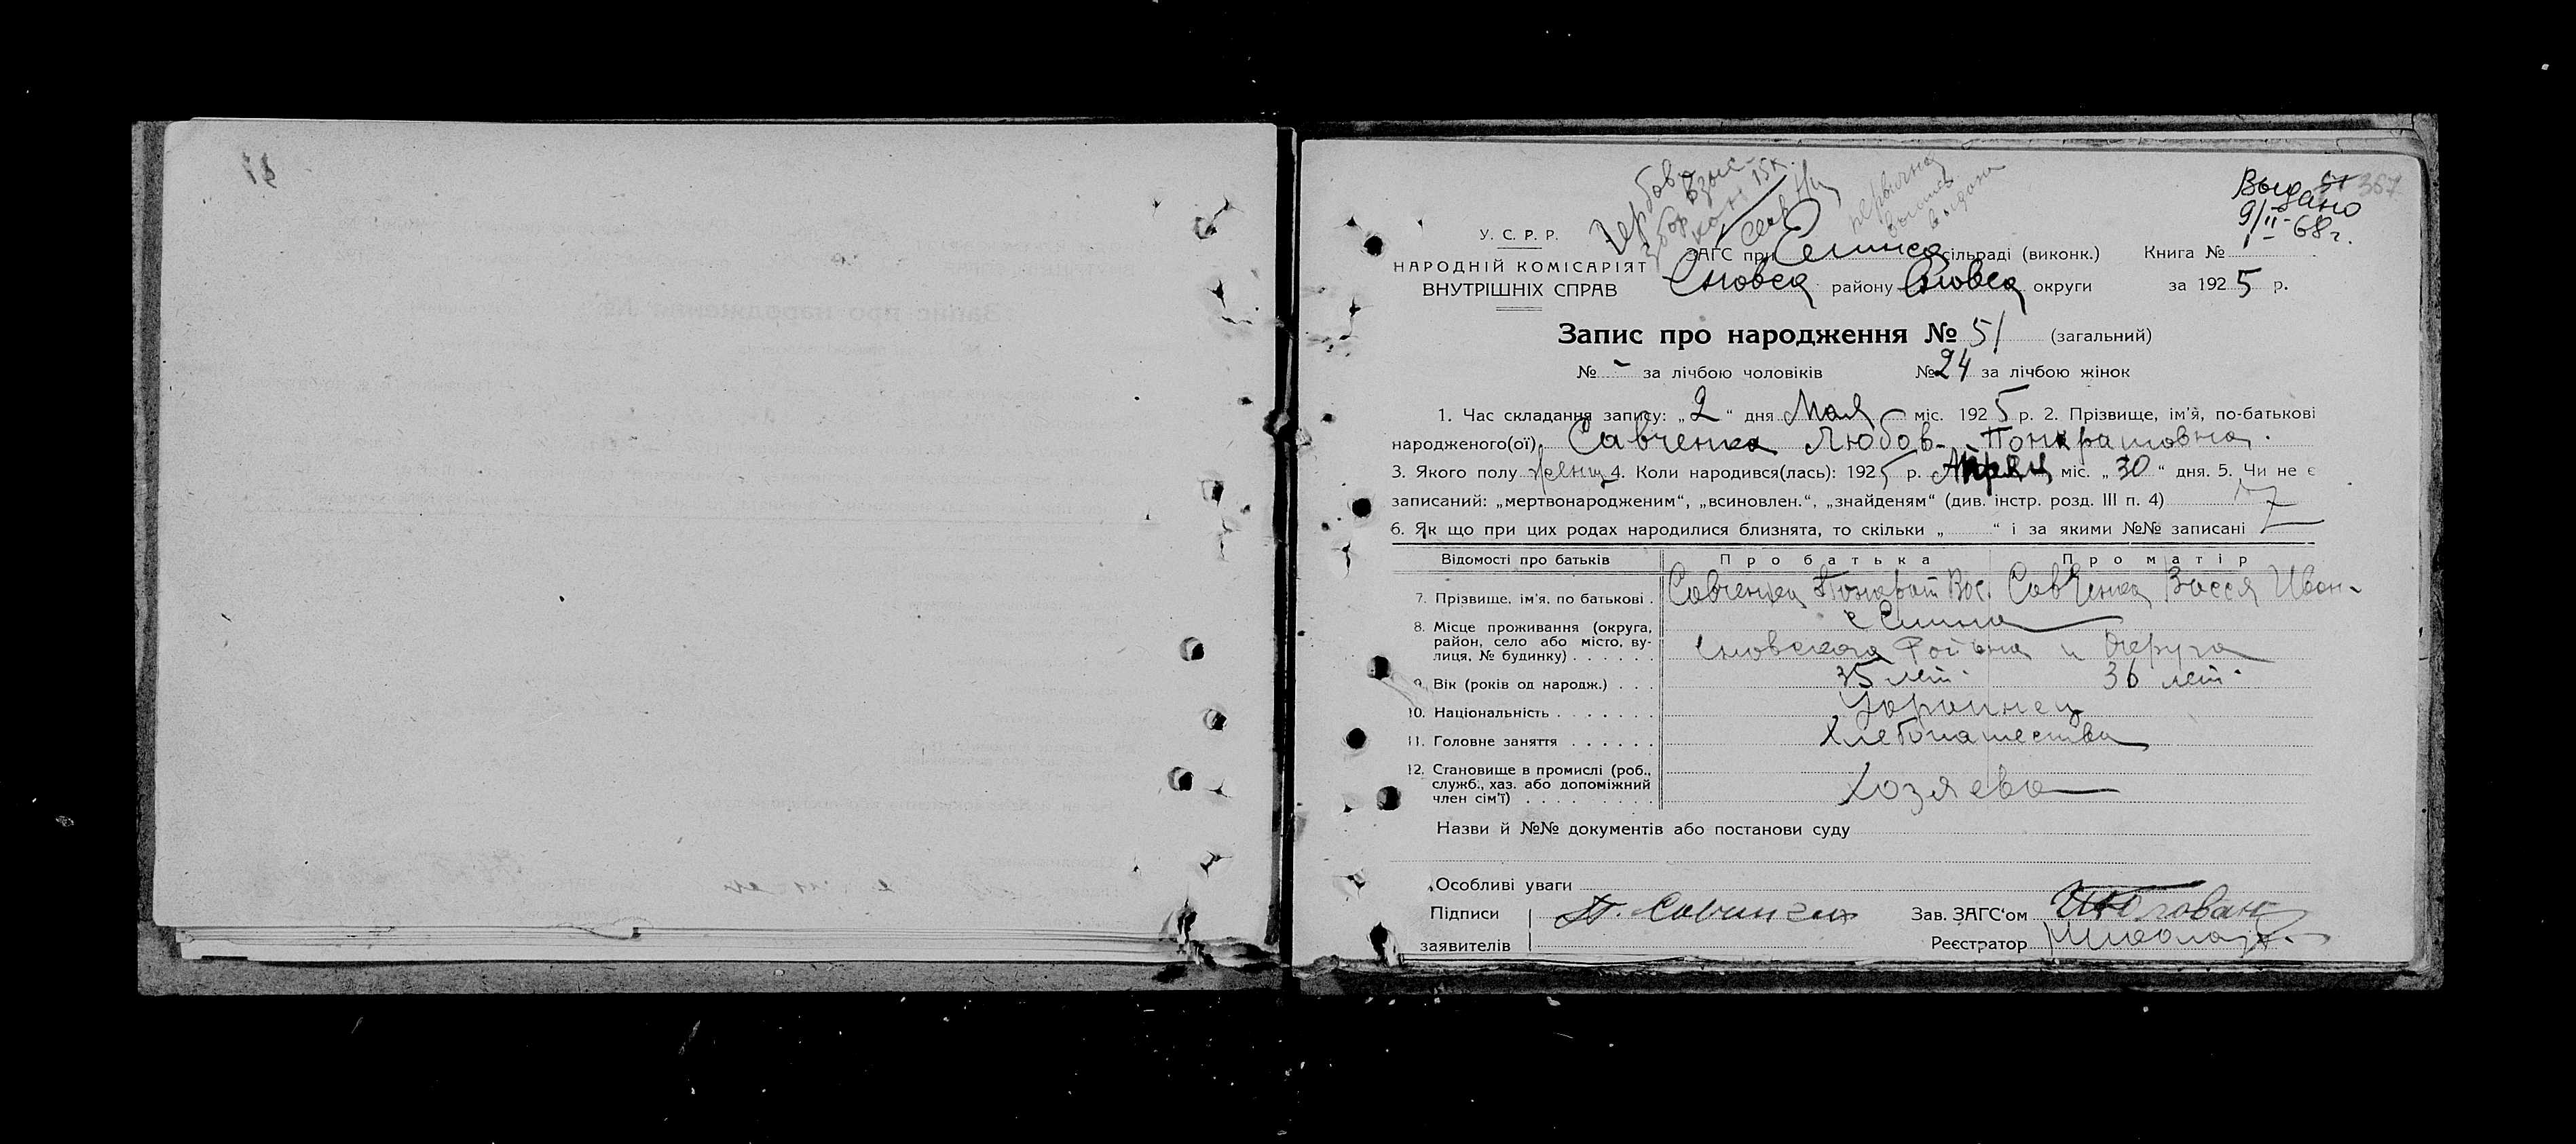 Выдано
9/II-68 г.
51 367
Гербовый
сбор взыс-
кан 15 к.
первичная
выпись
выдана
У. С. Р. Р.
НАРОДНІЙ КОМІСАРІЯТ
ВНУТРІШНІХ СПРАВ
ЗАГС при сільраді (виконк.) Книга № 1
Сновск району Сновск округи за 1925 р.
Запис про народження № 51 (загальний)
№ - за лічбою чоловіків № 24 за лічбою жінок
1. Час складання запису: „2“ дня Мая міс. 1925 р. 2. Прізвище, ім’я, по-батькові
народженого(ої) Савченка Любов Понкратовна.
3. Якого полу женщ 4. Коли народився(лась): 1925 р. Апрел міс. „30“ дня. 5. Чи не є
записаний: „мертвонародженим“, „всиновлен.“, „знайденям“ (див. інстр. розд. III п. 4)
6. Як що при цих родах народилися близнята, то скільки „ “ і за якими №№ записані
Відомості про батьків Про батька Про матір
7. Прізвище, ім’я, по батькові . Савченка Понкрат Вас. Савченка Васся Иван-
8. Місце проживання (округа,
район, село або місто, ву-
лиця, № будинку) . . . . . . Сновского Района и Округа
9. Вік (років од народж.) . . . 35 лет. 36 лет.
10. Національність . . . . . . . Украинец
11. Головне заняття . . . . . . Хлебопашества
12. Становище в промислі (роб.,
служб., хаз. або допоміжний
член сім’ї) . . . . . . . . . Хозяева
Назви й №№ документів або постанови суду
Особливі уваги
Підписи П. Савченко Зав. ЗАГС’ом
заявителів Реєстратор